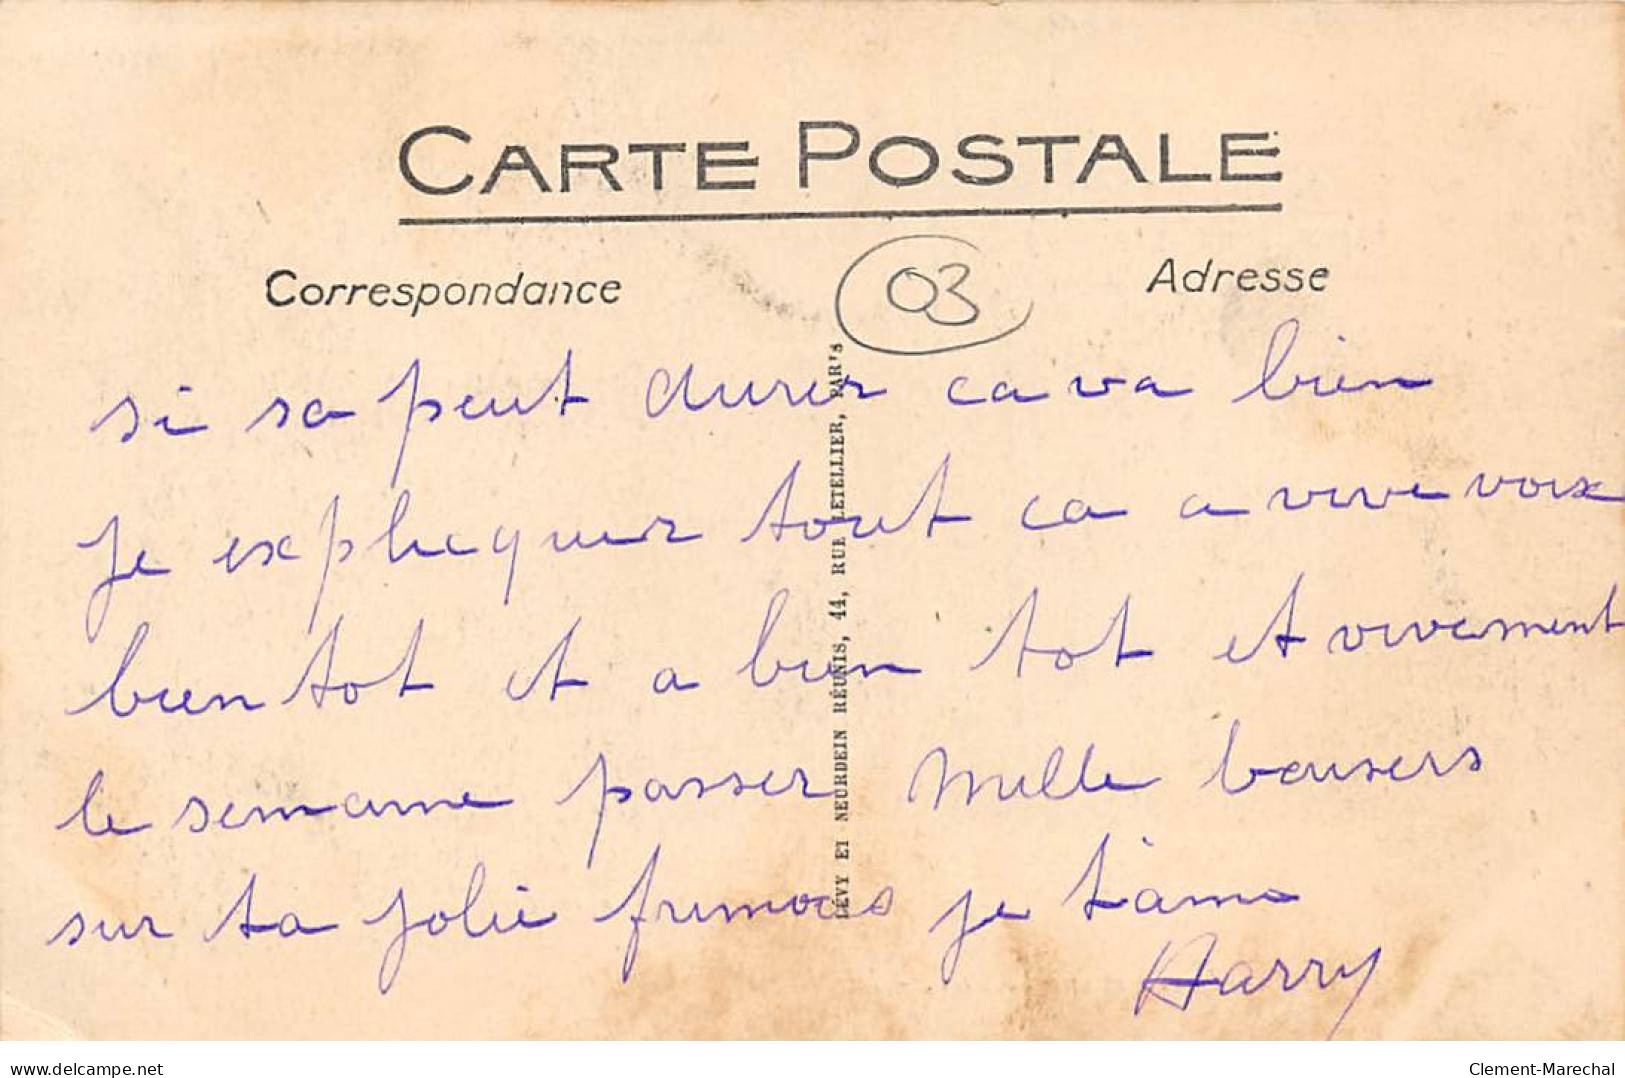 CARTE POSTALE
Correspondance
03
Adresse
si sa peut durer ca va bien
Je expliquer tout ca a vive voix
bien tot et a bien tot et vivement
le semaine passer Mille baisers
sur ta jolie frimous je t'aime
Harry
LÉVY ET NEURDEIN RÉUNIS, 44, RUE LETELLIER, PARIS
www.delcampe.net
Clement-Marechal